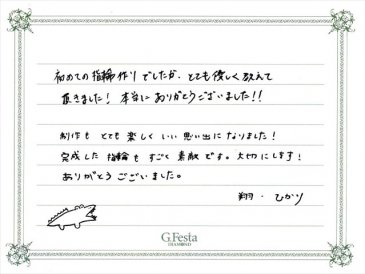 初めての指輪作りでしたが、とても優しく教えて
頂きました！本当にありがとうございました！！
制作もとても楽しくいい思い出になりました！
完成した指輪もすごく素敵です。大切にします！
ありがとうございました。
翔・ひかり
G.Festa
DIAMOND